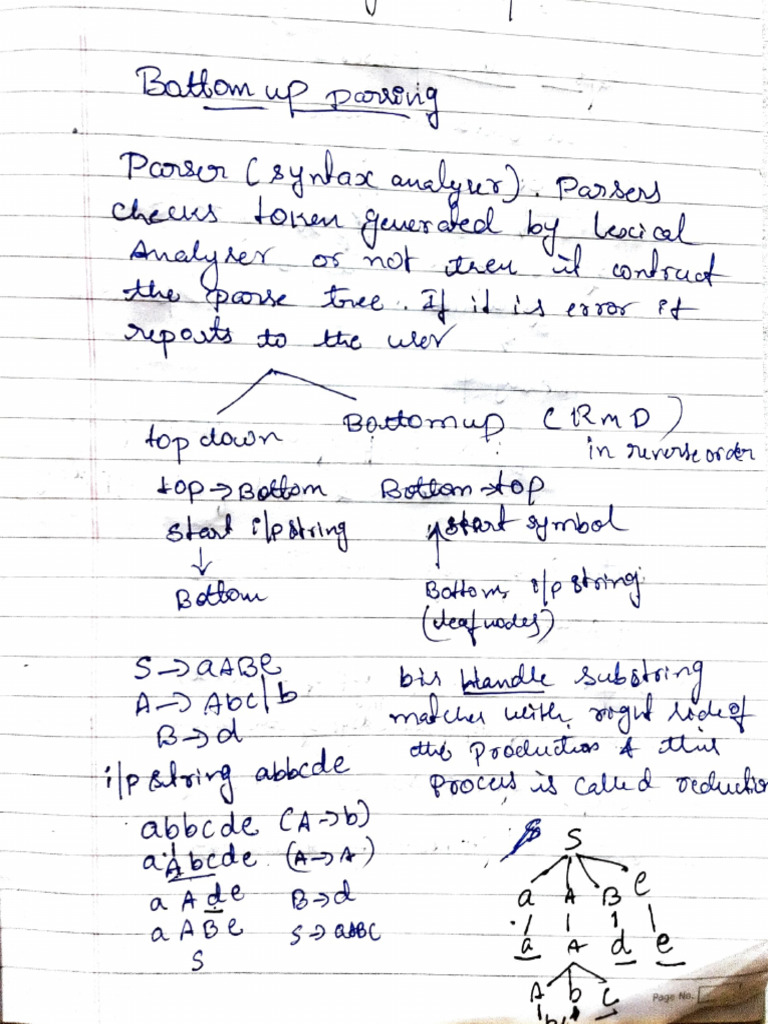 Bottom up parsing
Parser (syntax analyser). Parsers
checks token generated by lexical
Analyser or not then it contruct
the parse tree. If it is error it
reports to the user
top down Bottom up (RMD)
in reverse order
top → Bottom Bottom → top
start i/p string start symbol
↓ ↑
Bottom Bottom i/p string
(leaf nodes)
S → aABe
A → Abc | b
B → d
i/p string abbcde
b is Handle substring
matches with right side of
the production & this
process is called reduction
abbcde (A → b)
aAbcde (A → A)
aAde B → d
aABe S → aABC
S
S
a A B e
a A d e
A b c
b
Page No.